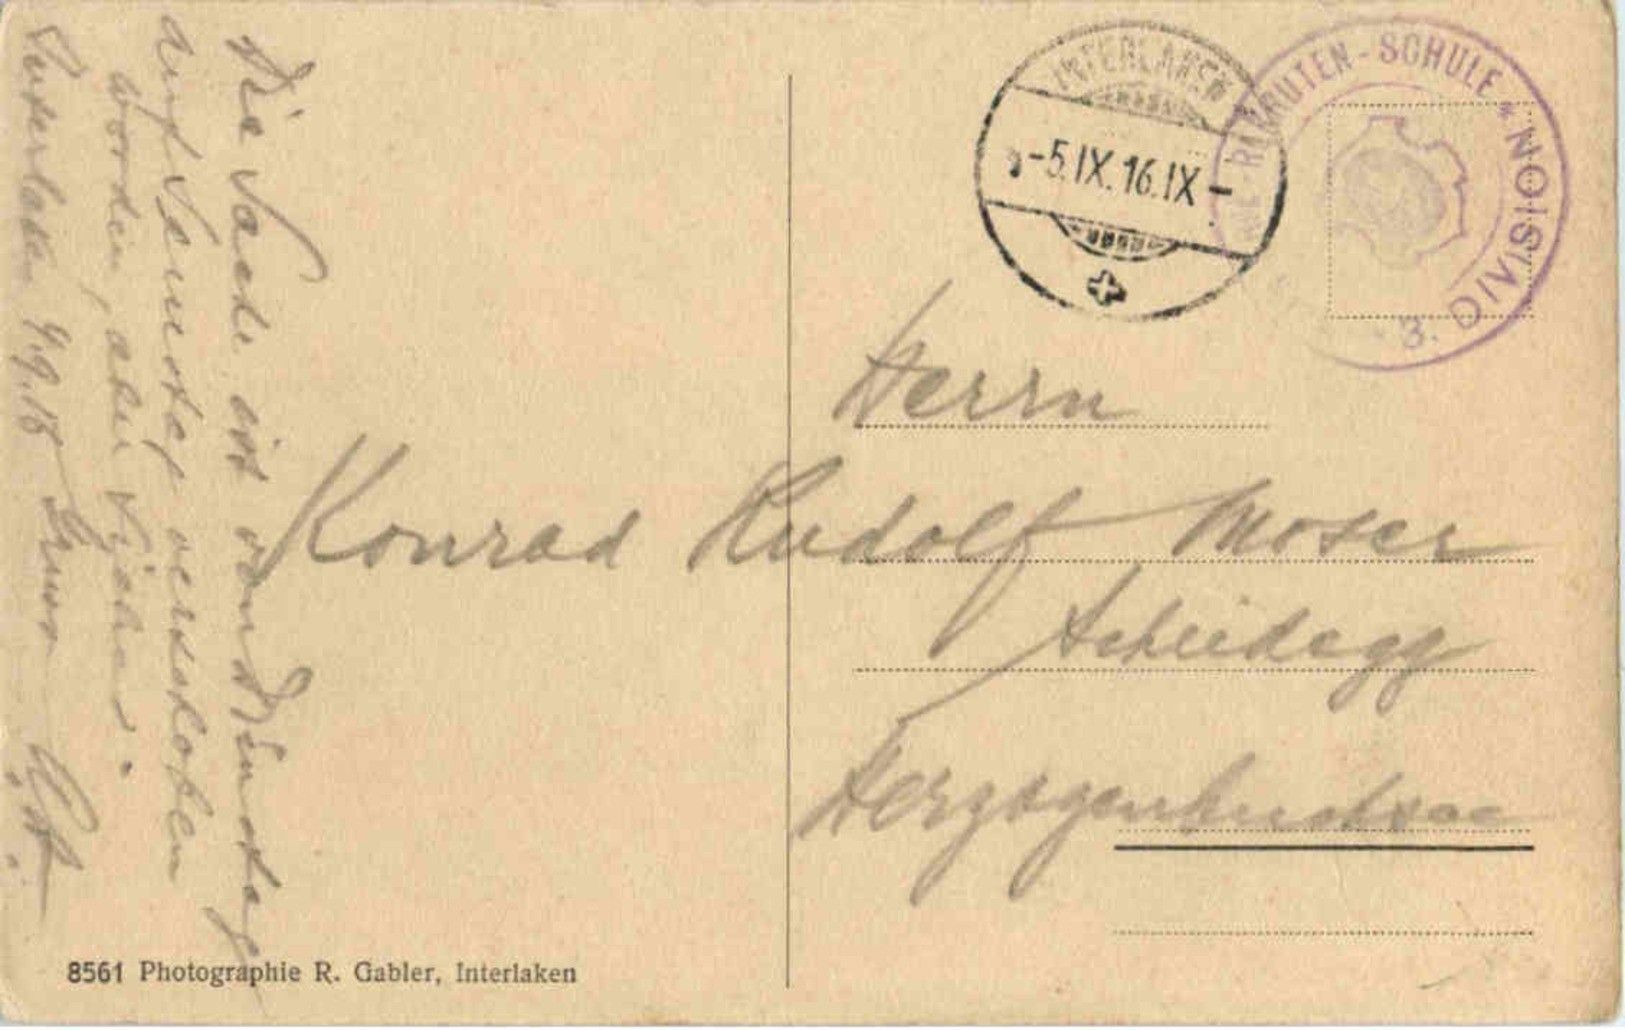 INTERLAKEN
-5.IX.16.IX-
RUTEN-SCHULE * 3. DIVISION
Herrn
Konrad Rudolf Moser
Scheidegg
Herzogenbuchsee
Die Sache ist von Dienstag
auf Samstag verschoben
worden, aber
Interlaken 4.9.16 Gruss
8561 Photographie R. Gabler, Interlaken